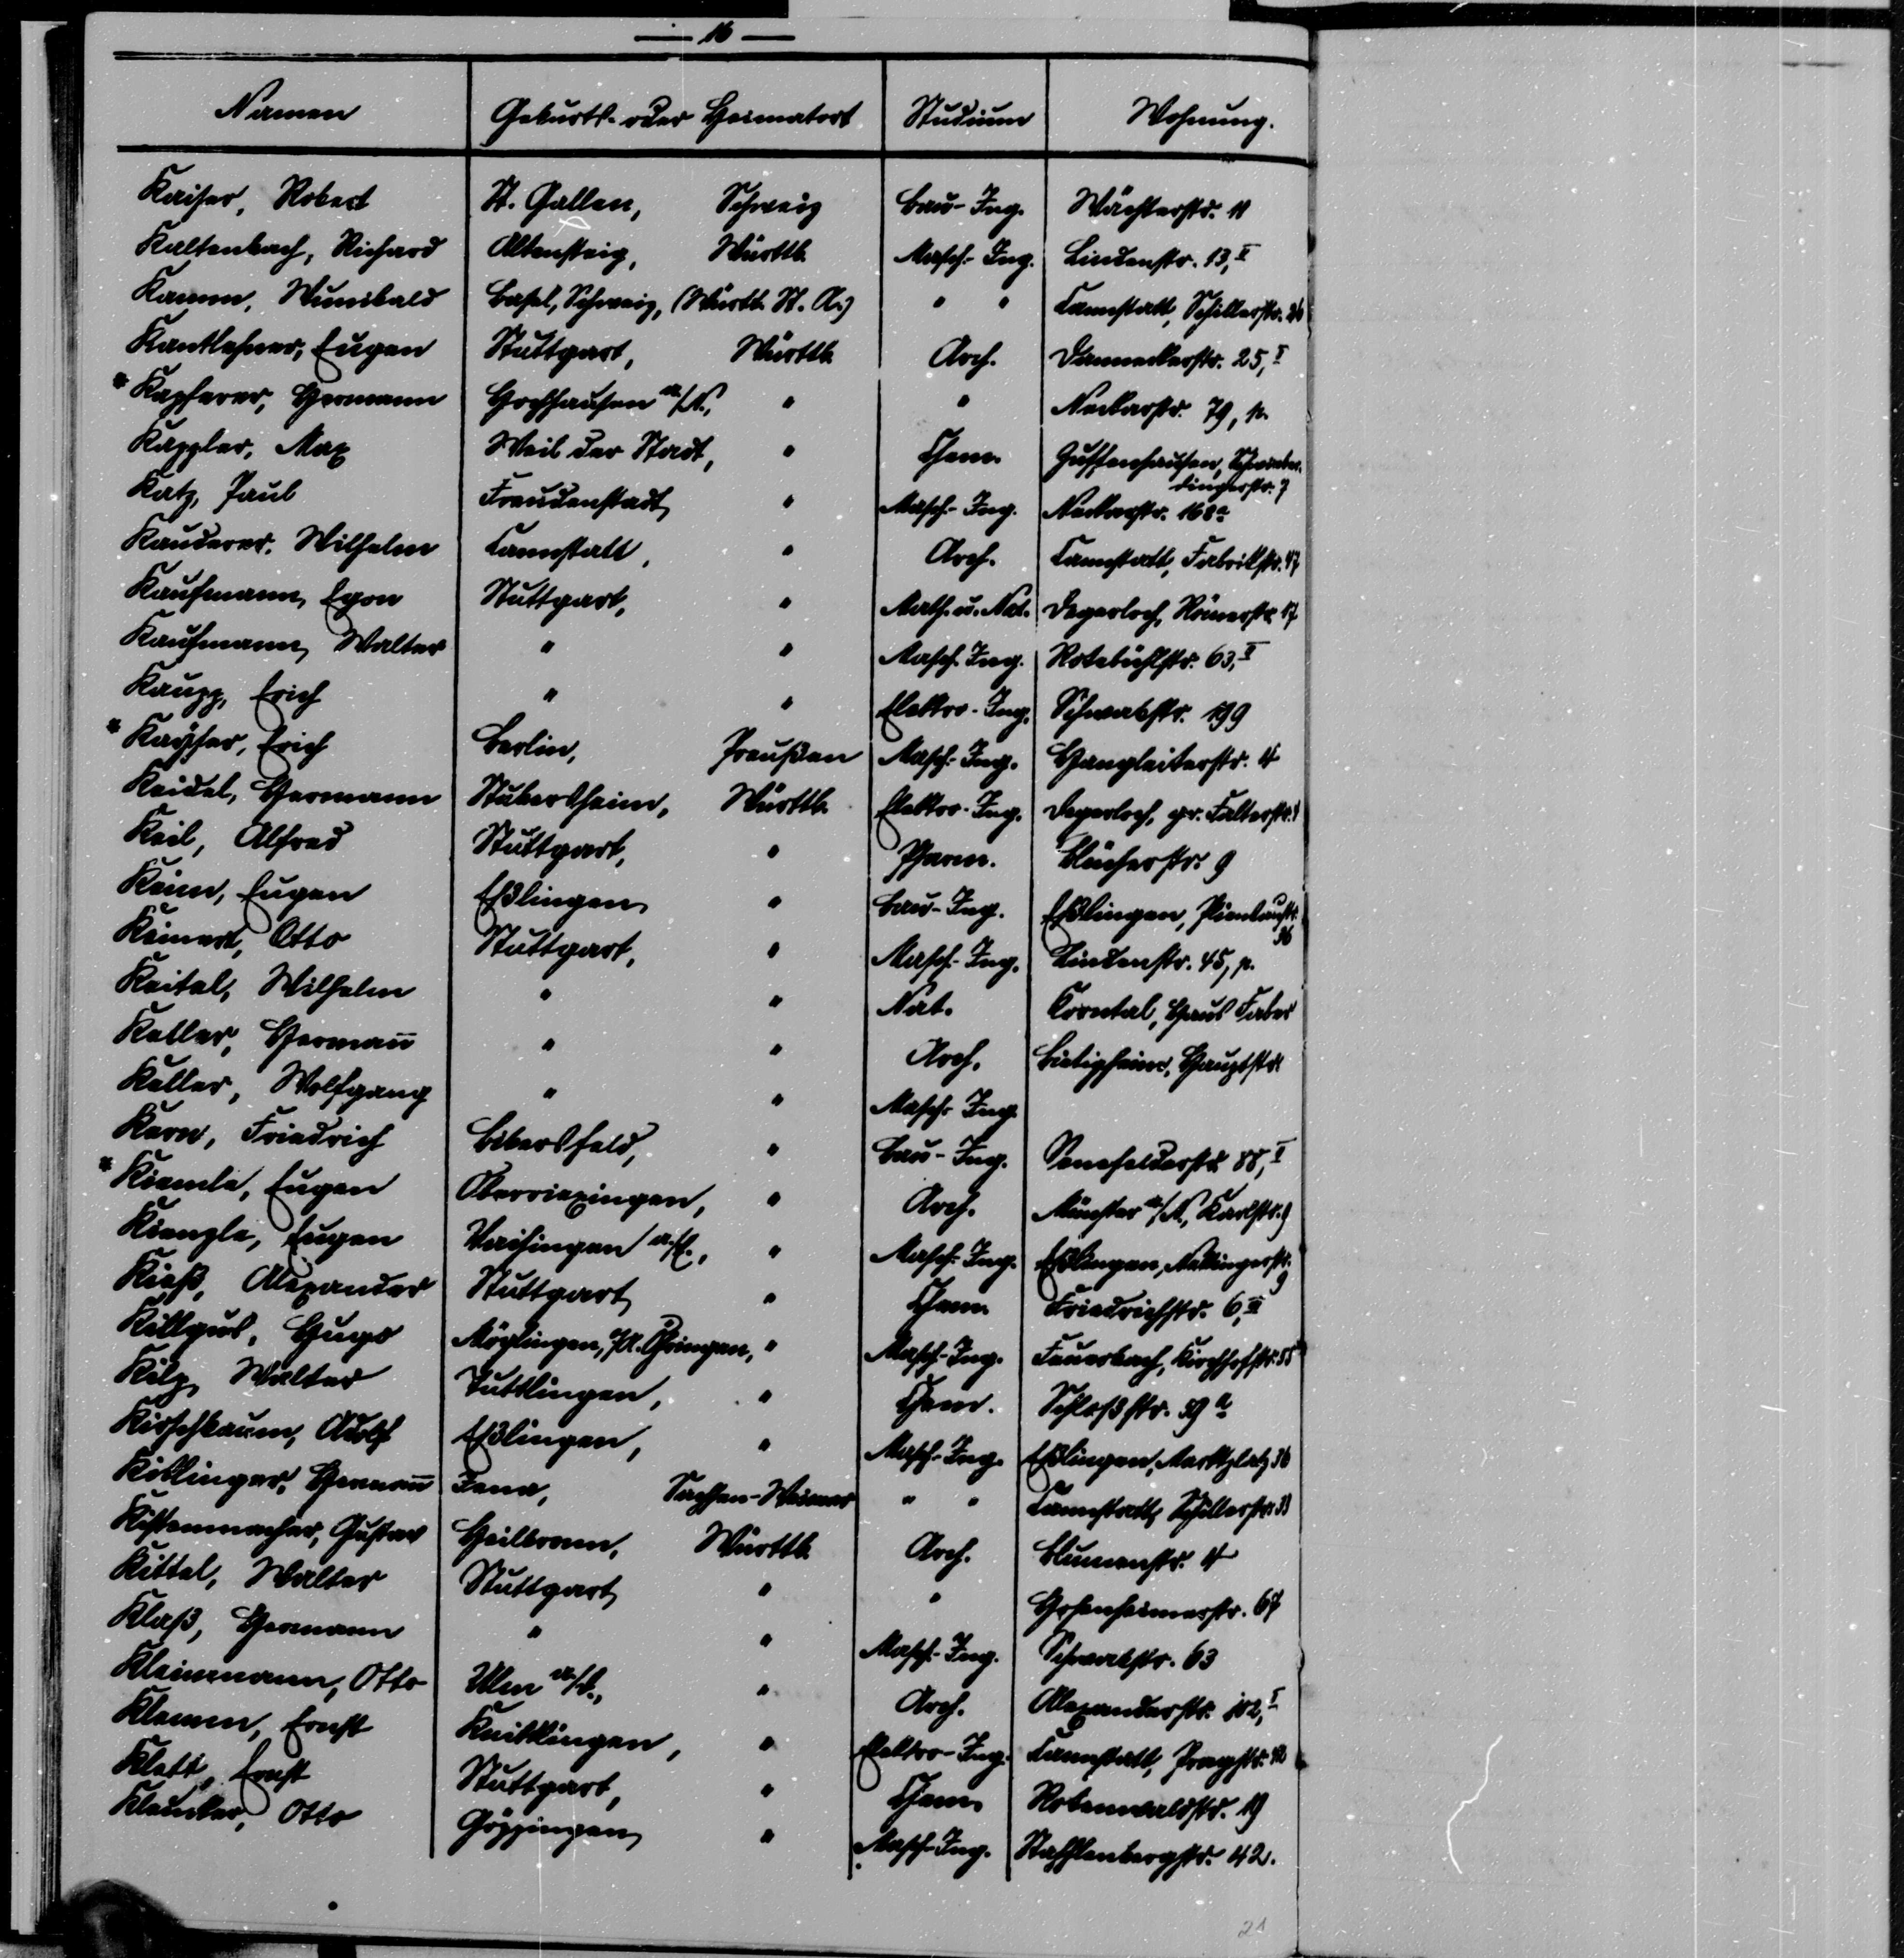 — 16 —
Namen Geburts- oder Heimatort Studium Wohnung.
Kaiser, Robert St. Gallen, Schweiz Bau-Ing. Wächterstr. 11
Kaltenbach, Richard Altensteig, Württb. Masch.-Ing. Lindenstr. 13, II
Kamm, Wunibald Basel, Schweiz, (Württb. St. A.) " " Cannstatt, Schillerstr. 26
Kantlehner, Eugen Stuttgart, Württb. Arch. Danneckerstr. 25, I
* Kapferer, Hermann Hochhausen a/N., " " Neckarstr. 79, p.
Kappler, Max Weil der Stadt, " Chem. Zuffenhausen, Schwieber-
dingerstr. 7
Katz, Paul Freudenstadt, " Masch.-Ing. Neckarstr. 168a
Kauderer, Wilhelm Cannstatt, " Arch. Cannstatt, Fabrikstr. 47
Kaufmann, Egon Stuttgart, " Math. u. Nat. Degerloch, Römerstr. 17
Kaufmann, Walter " " Masch.-Ing. Rotebühlstr. 63, II
Kaupp, Erich " " Elektro-Ing. Schwabstr. 199
* Kayser, Erich Berlin, Preußen Masch.-Ing. Hangleiterstr. 4
Keidel, Hermann Stubersheim, Württb. Elektro-Ing. Degerloch, gr. Falterstr.
Keil, Alfred Stuttgart, " Pharm. Blücherstr. 9
Keim, Eugen Eßlingen, " Bau-Ing. Eßlingen, Plienhaustr.
36
Keinert, Otto Stuttgart, " Masch.-Ing. Lindenstr. 45, p.
Keitel, Wilhelm " " Nat. Korntal, Haus Faber
Keller, Hermann " " Arch. Bietigheim, Hauptstr.
Keller, Wolfgang " " Masch.-Ing.
Kern, Friedrich Bibersfeld, " Bau-Ing. Senefelderstr. 88, I
* Kiemle, Eugen Oberriexingen, " Arch. Münster a/N., Karlstr. 9
Kienzle, Eugen Vaihingen a/E., " Masch.-Ing. Eßlingen, Nellingerstr.
9
Kieß, Alexander Stuttgart, " Chem. Friedrichstr. 6, III
Killgus, Hugo Möglingen, O/A. Öhringen, " Masch.-Ing. Feuerbach, Kirchhofstr. 55
Kilp, Walter Tuttlingen, " Chem. Schloßstr. 59 a
Kirschbaum, Adolf Eßlingen, " Masch.-Ing. Eßlingen, Marktplatz 36
Kißlinger, Hermann Jena, Sachsen-Weimar " " Cannstatt, Schillerstr. 33
Kistenmacher, Gustav Heilbronn, Württb. Arch. Blumenstr. 4
Kittel, Walter Stuttgart, " " Hohenheimerstr. 67
Klaß, Hermann " " Masch.-Ing. Schwabstr. 63
Kleinmann, Otto Ulm a/D., " Arch. Alexanderstr. 102, I
Klemm, Ernst Knittlingen, " Elektro-Ing. Cannstatt, Pragstr.
Klett, Ernst Stuttgart, " Chem. Rotenwaldstr. 19
Klenker, Otto Göppingen, " Masch.-Ing. Stafflenbergstr. 42.
21